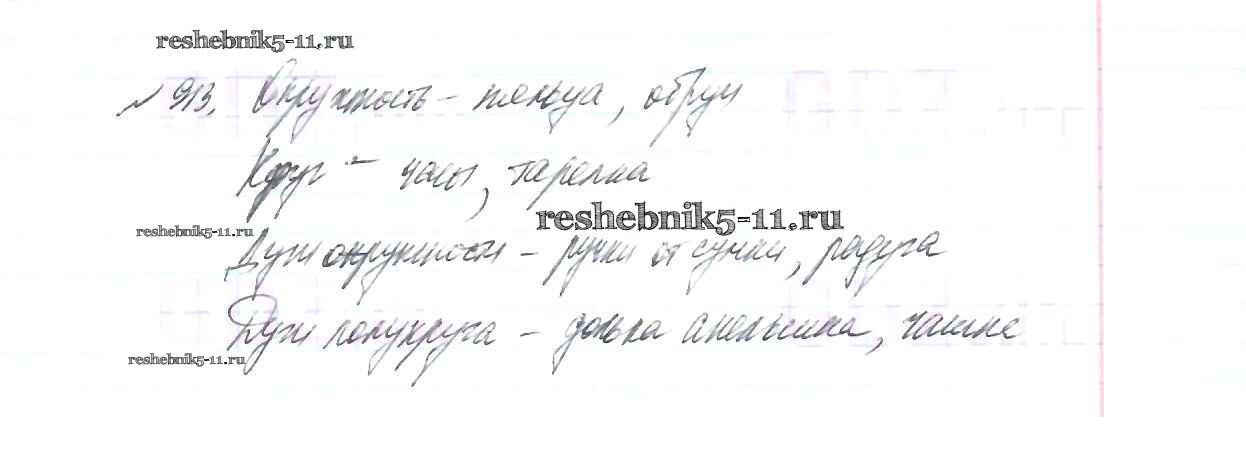 reshebnik5-11.ru
№ 913. Окружность – кольца, обруч
Круг – часы, тарелка
reshebnik5-11.ru
reshebnik5-11.ru
Дуги окружности – ручки от сумки, радуга
Дуги полукруга – долька апельсина,
reshebnik5-11.ru